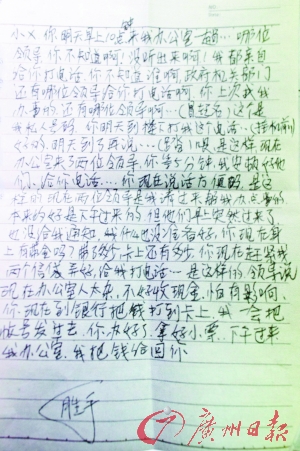 小X 你明天早上10点来我办公室一趟…哪位
领导你不知道啊！没听出来啊！我都亲自
给你打电话，你不知道，说，政府机关部门
还有哪位领导给你打电话，你上次我
办事的，还有哪位领导啊…(冒姓名)这个是
我私人号码，你明天到楼下打我这个电话…(挂机前)
好的，明天到了再说…(另首)喂，是这样，现在
办公室来了两位领导，你等5分钟，我安排好他
们，给你电话…你现在说话方便吗，是这
样的，现在两位领导是我请过来的，办点事的，
本来约好是下午过来的，但他们早上突然过来了
也没给我通知，我什么也没准备好，你现在身
上有现金吗？带了多少，卡上还有多少，你现在赶紧找
两个信封弄好，给我打电话…是这样的，领导说
现在办公室人太杂，不好收现金，怕有影响，
你现在到银行把钱打到卡上，我一会把
帐号发过去，你办好了，拿好小票，下午过来
我办公室，我把钱给回你
胜手
广州日报